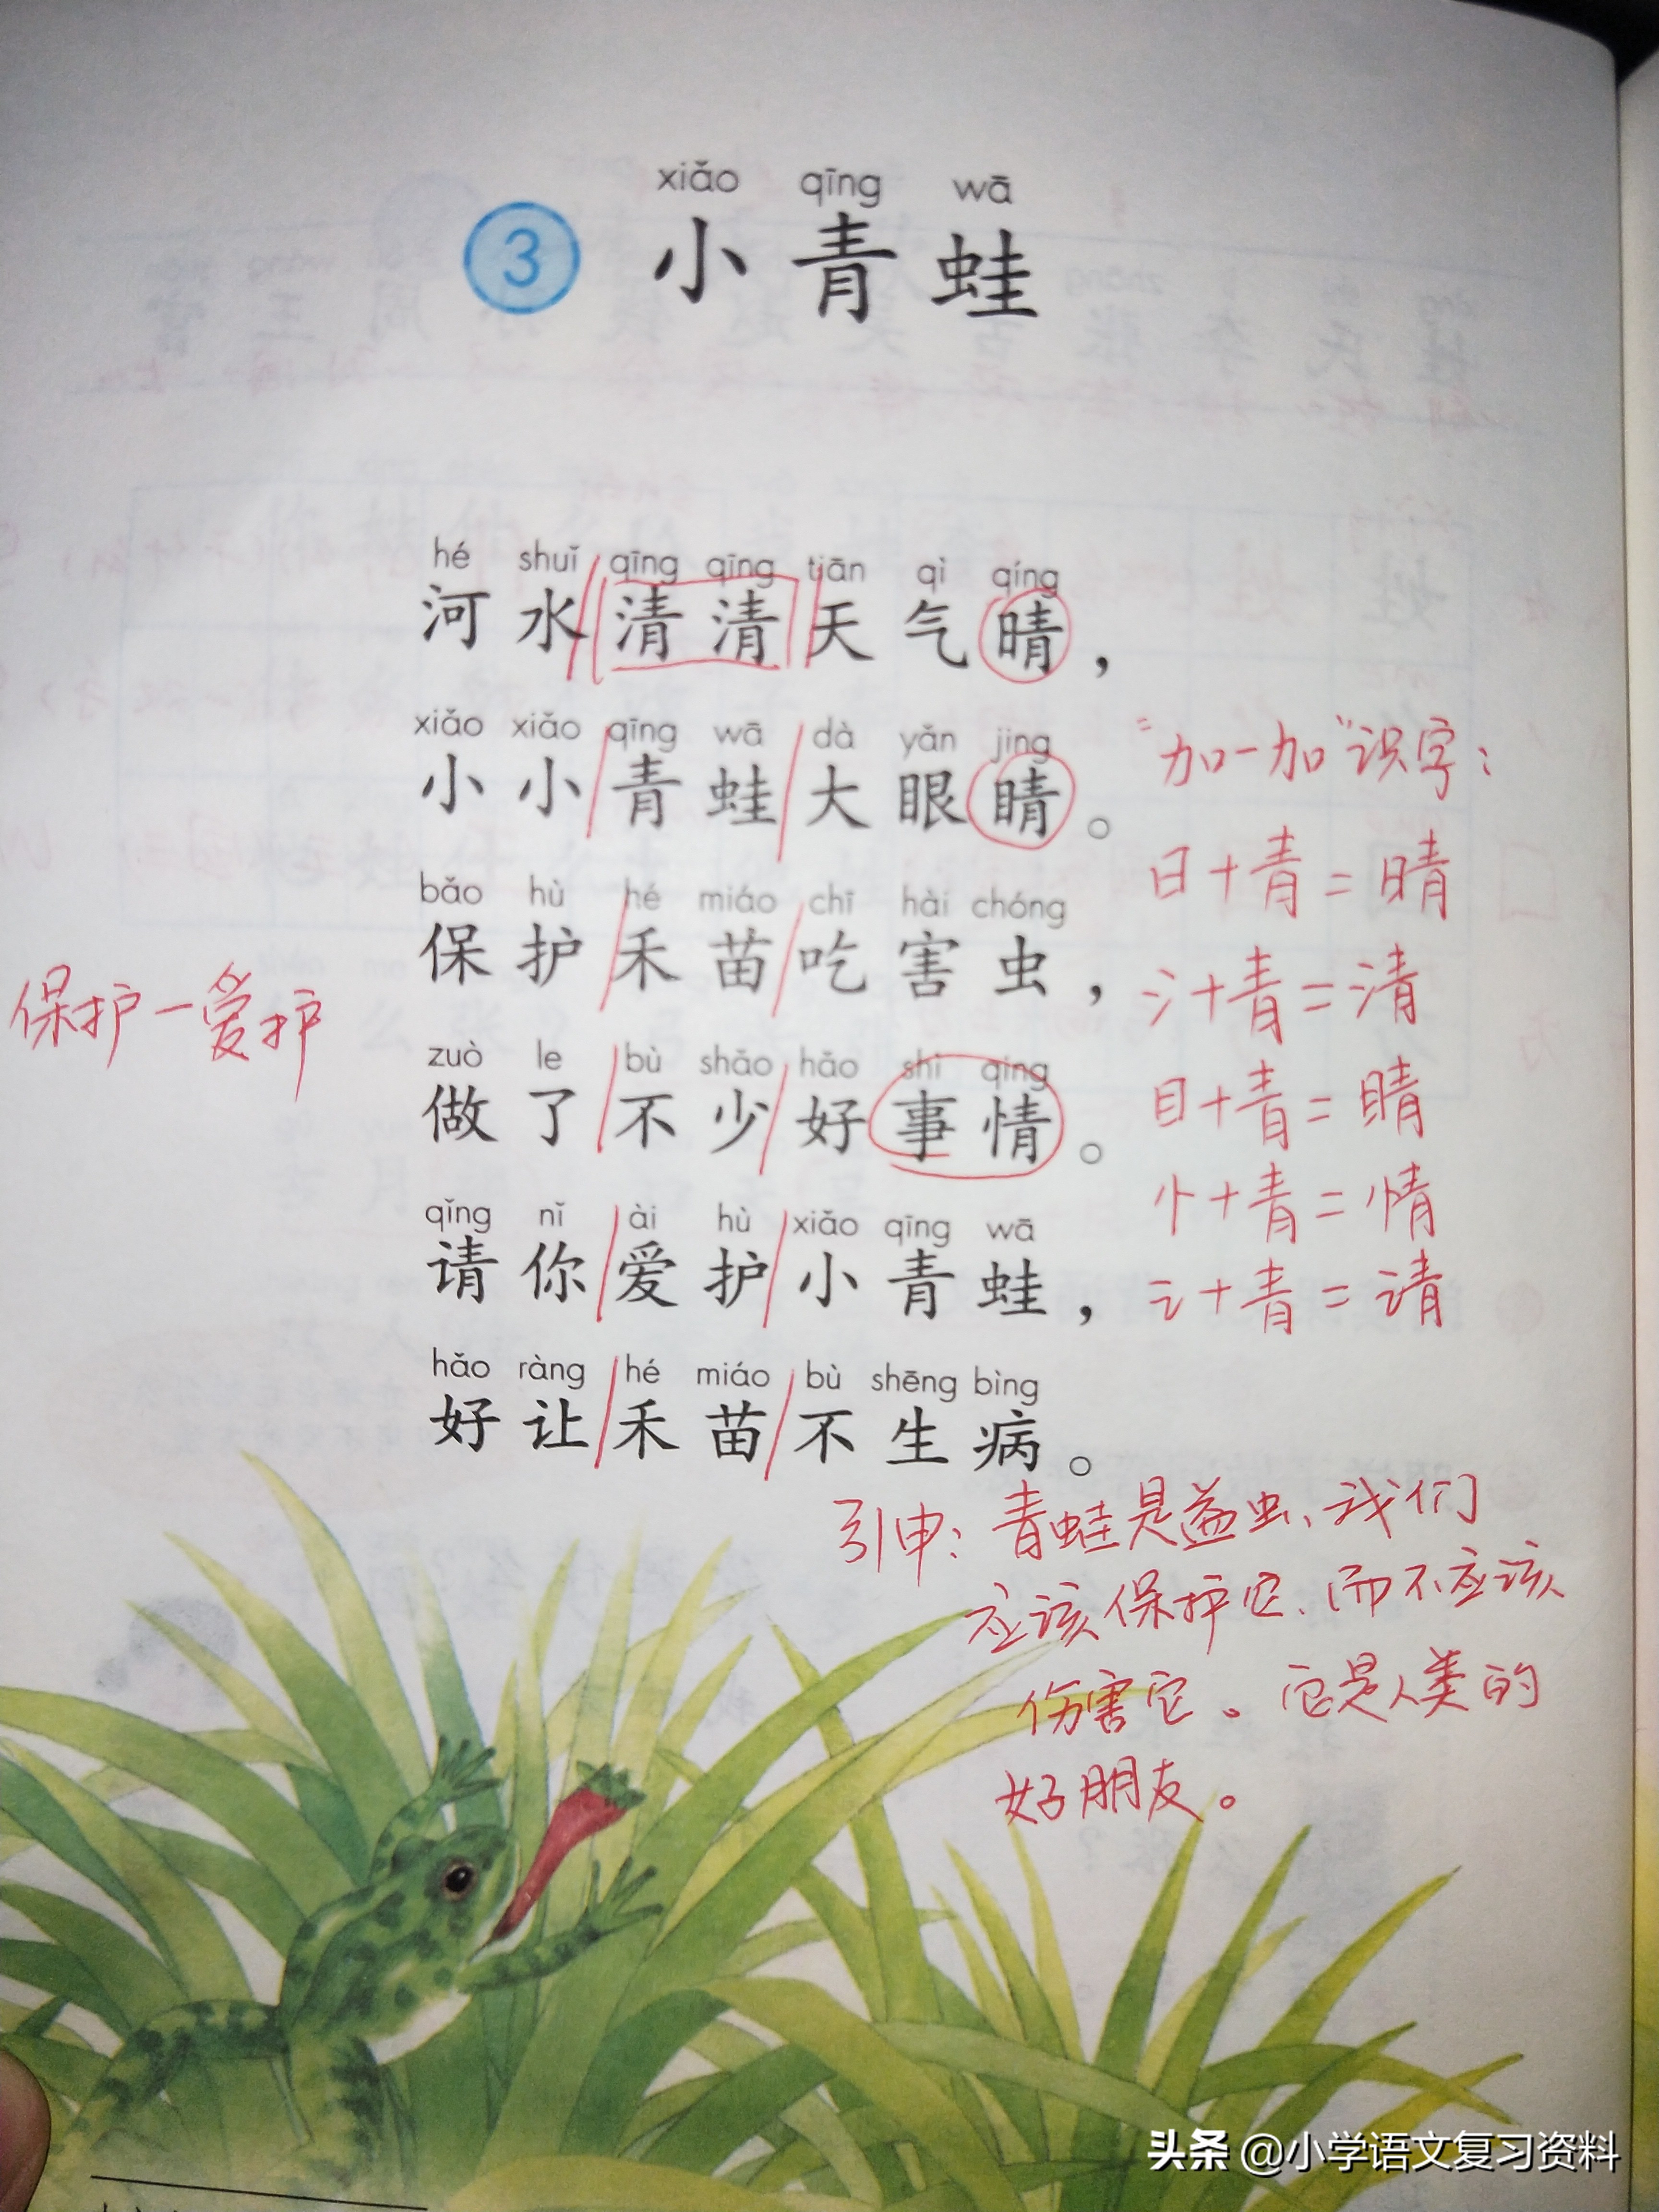 xiǎo qīng wā
3 小青蛙
hé shuǐ qīng qīng tiān qì qíng
河水清清天气晴，
xiǎo xiǎo qīng wā dà yǎn jing
小小青蛙大眼睛。
bǎo hù hé miáo chī hài chóng
保护禾苗吃害虫，
zuò le bù shǎo hǎo shì qing
做了不少好事情。
qǐng nǐ ài hù xiǎo qīng wā
请你爱护小青蛙，
hǎo ràng hé miáo bù shēng bìng
好让禾苗不生病。
保护—爱护
“加一加”识字：
日+青=晴
氵+青=清
目+青=睛
忄+青=情
讠+青=请
引申：青蛙是益虫、我们
应该保护它、而不应该
伤害它。它是人类的
好朋友。
头条 @小学语文复习资料